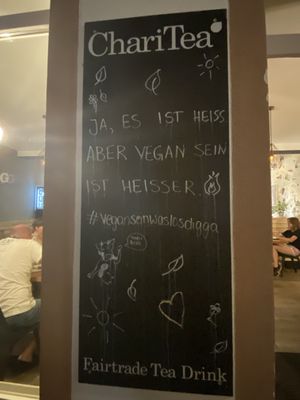 ChariTea
JA, ES IST HEISS
ABER VEGAN SEIN
IST HEISSER.
#Vegansenwaslosdigga
Fairtrade Tea Drink